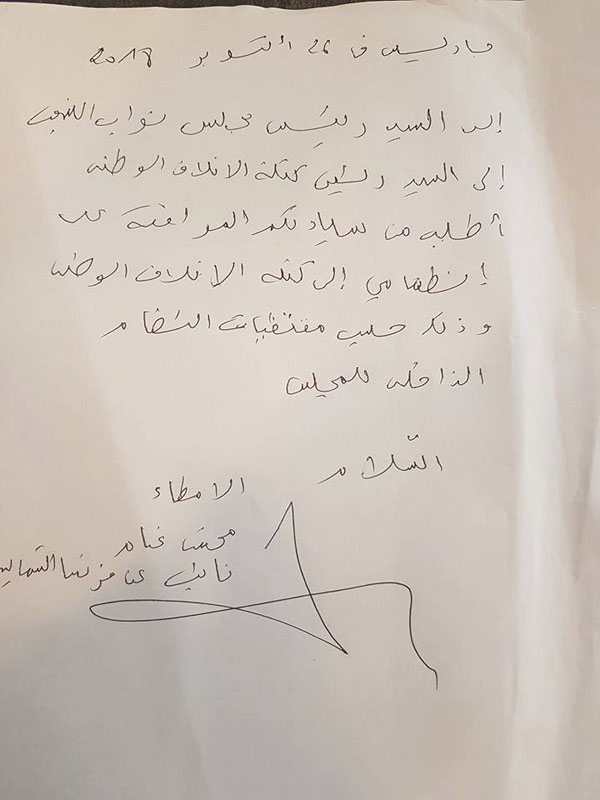 باريس في 26 أكتوبر 2018
إلى السيد رئيس مجلس نواب الشعب
إلى السيد رئيس كتلة الائتلاف الوطني
أطلب من سيادتكم الموافقة على
إنظمامي إلى كتلة الائتلاف الوطني
وذلك حسب مقتضيات النظام
الداخلي للمجلس
السّلام
الامضاء
غنام
نائب عن فرنسا الشمالية